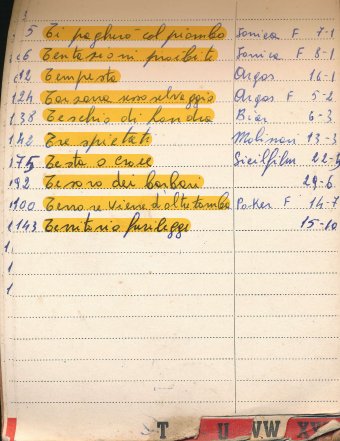 5 Ti pagherò col piombo Fonica F 7-1
6 Tentazioni proibite Fonica F 8-1
12 Tempesta Orgas 16-1
24 Tarzana sesso selvaggio Orgas F 5-2
38 Teschio di Londra Bior 6-3
42 Tre spietati Molinari 13-3
75 Testa o Croce Sicilfilm 22-5
92 Tesoro dei barbari 29-6
100 Terrore viene d'oltretomba Parker F 14-7
143 Territorio fuorilegge 15-10
T U VW XY